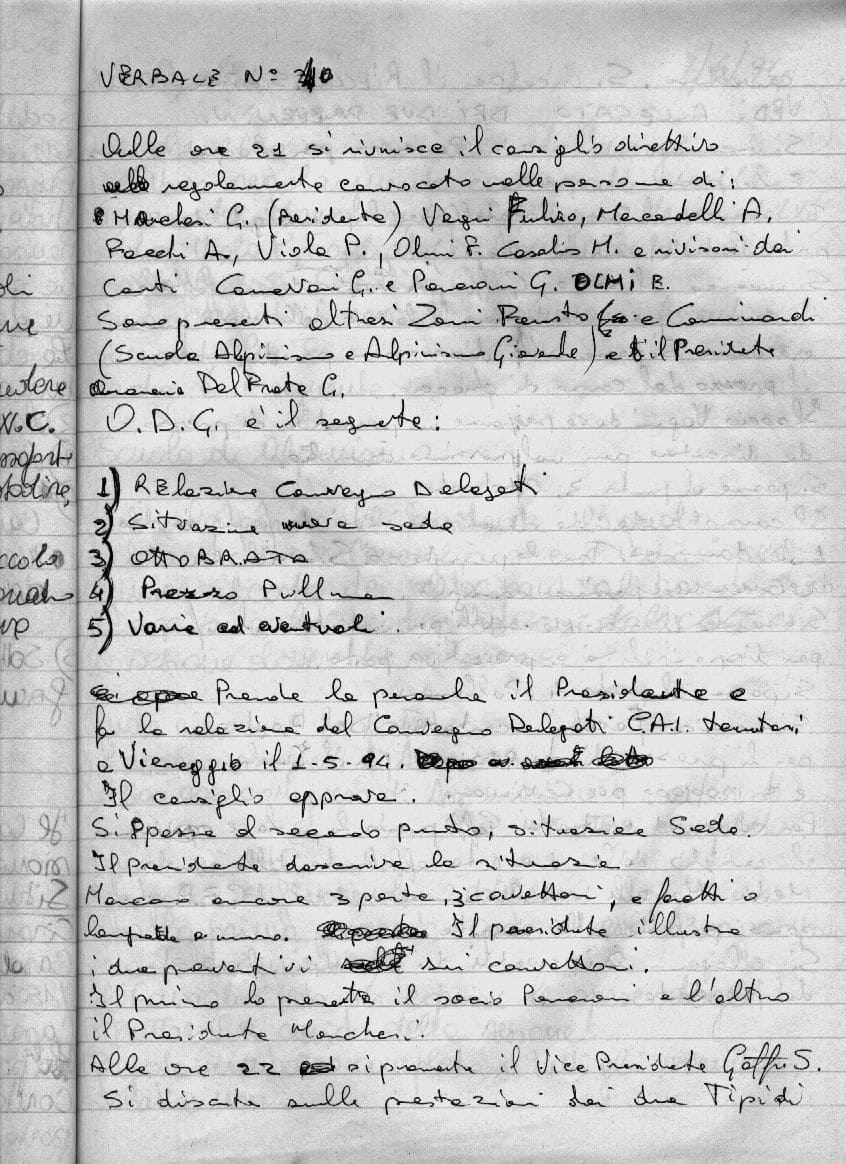 VERBALE N° 10
Dalle ore 21 si riunisce il consiglio direttivo
regolarmente convocato nelle persone di:
Marcheri G. (Presidente) Vegni Fulvio, Mercadelli A,
Rocchi A., Viola P., Olmi F. Casalis M. e revisori dei
Conti Canevari G. e Panaroni G. OLMI B.
Sono presenti altresì Zani Fausto e Caminardi
(Scuola Alpinismo e Alpinismo Giovanile) e il Presidente
Onorario Del Prete G.
O. D. G. è il seguente:
1) RElazione Convegno Delegati
2) Situazione nuova sede
3) OTTOBRATA
4) Prezzo Pullman
5) Varie ed eventuali.
Prende la parola il Presidente e
fa la relazione del Convegno Delegati C.A.I. tenutosi
a Viareggio il 1-5-94.
Il consiglio approva.
Si passa al secondo punto, situazione Sede.
Il presidente descrive la situazione
Mancano ancora 3 porte, 3 convettori, e faretti o
lampade a muro. Il presidente illustra
i due preventivi sui convettori.
Il primo lo presenta il socio Panaroni e l'altro
il Presidente Marcheri.
Alle ore 22 si presenta il Vice Presidente S.
Si discute sulle prestazioni dei due Tipi di
oli
ne
N.C.
ccolo
up